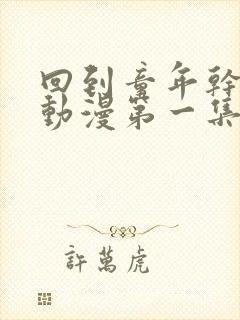 回到童年幹
動漫第一集
許萬虎